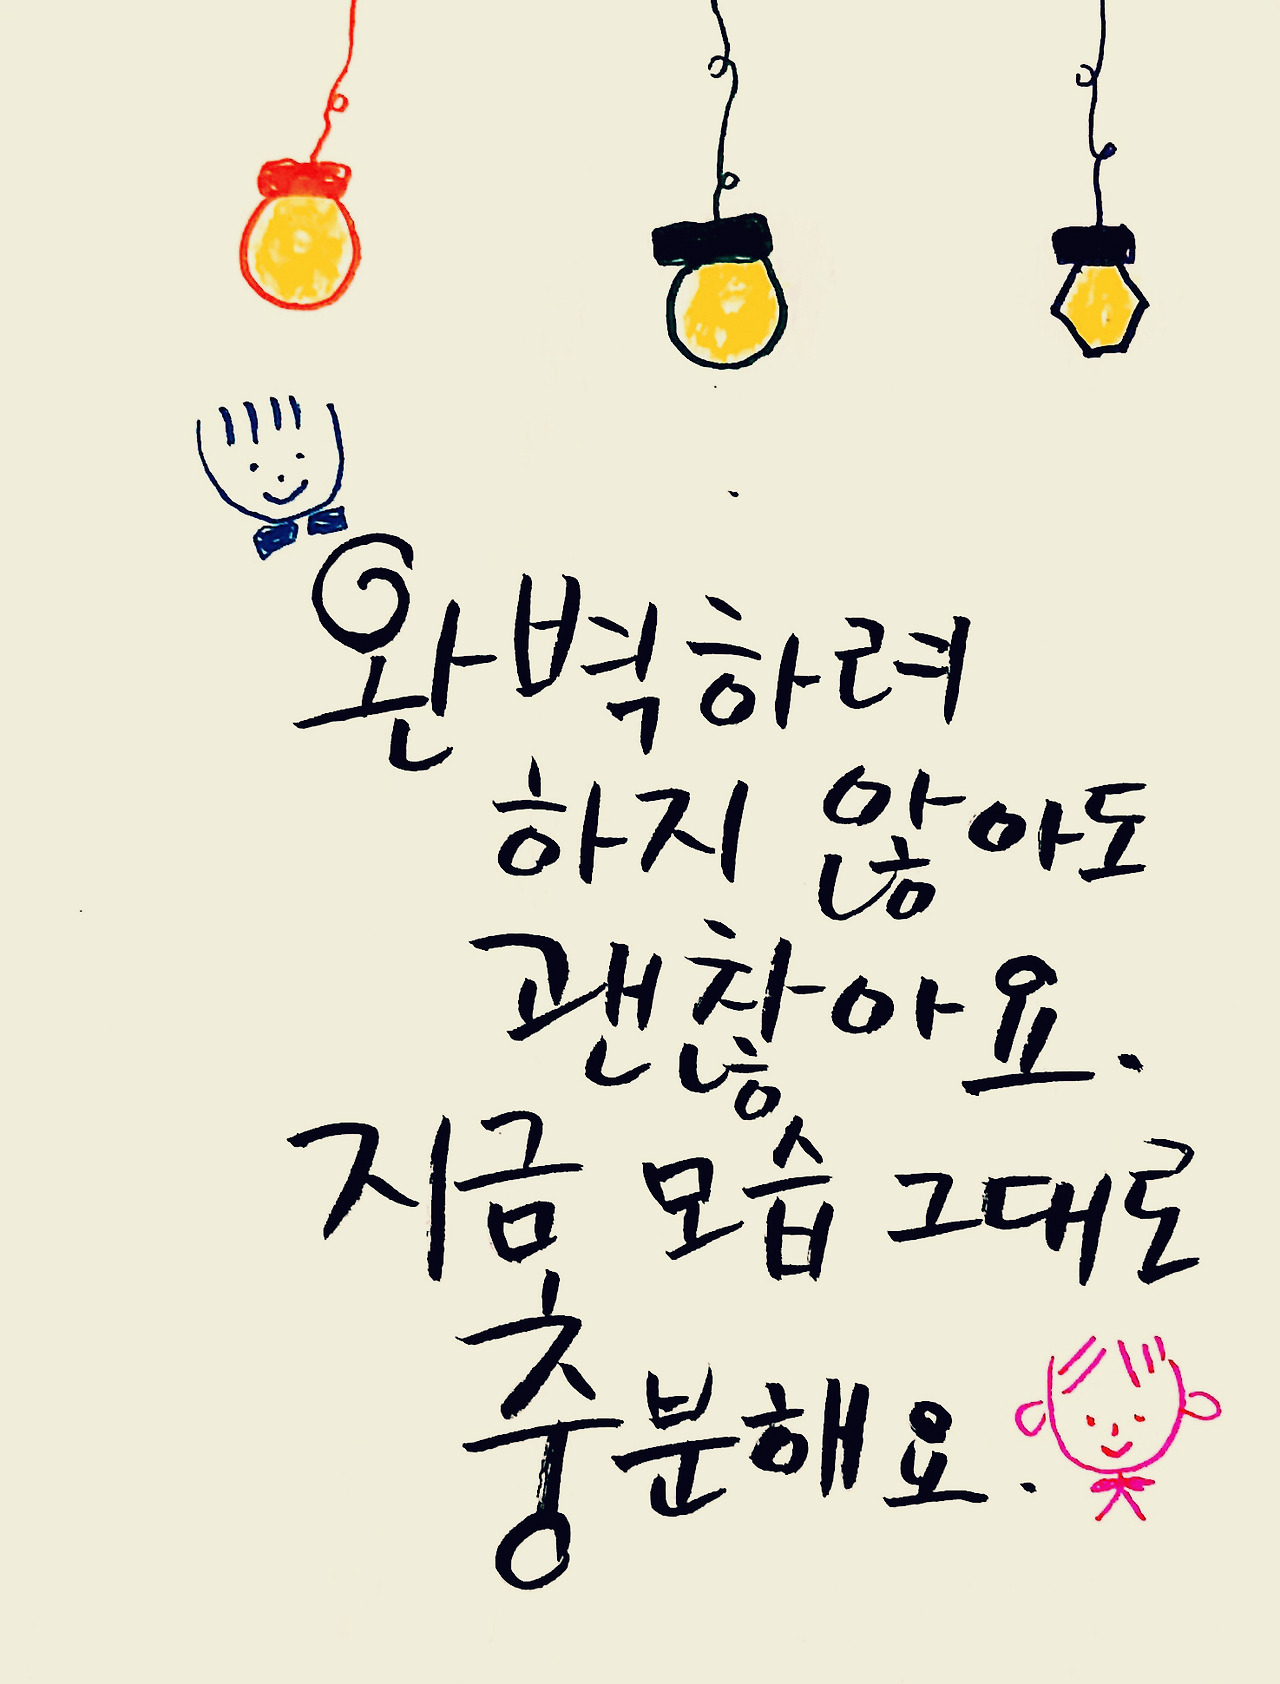 완벽하려
하지 않아도
괜찮아요.
지금 모습 그대로
충분해요.